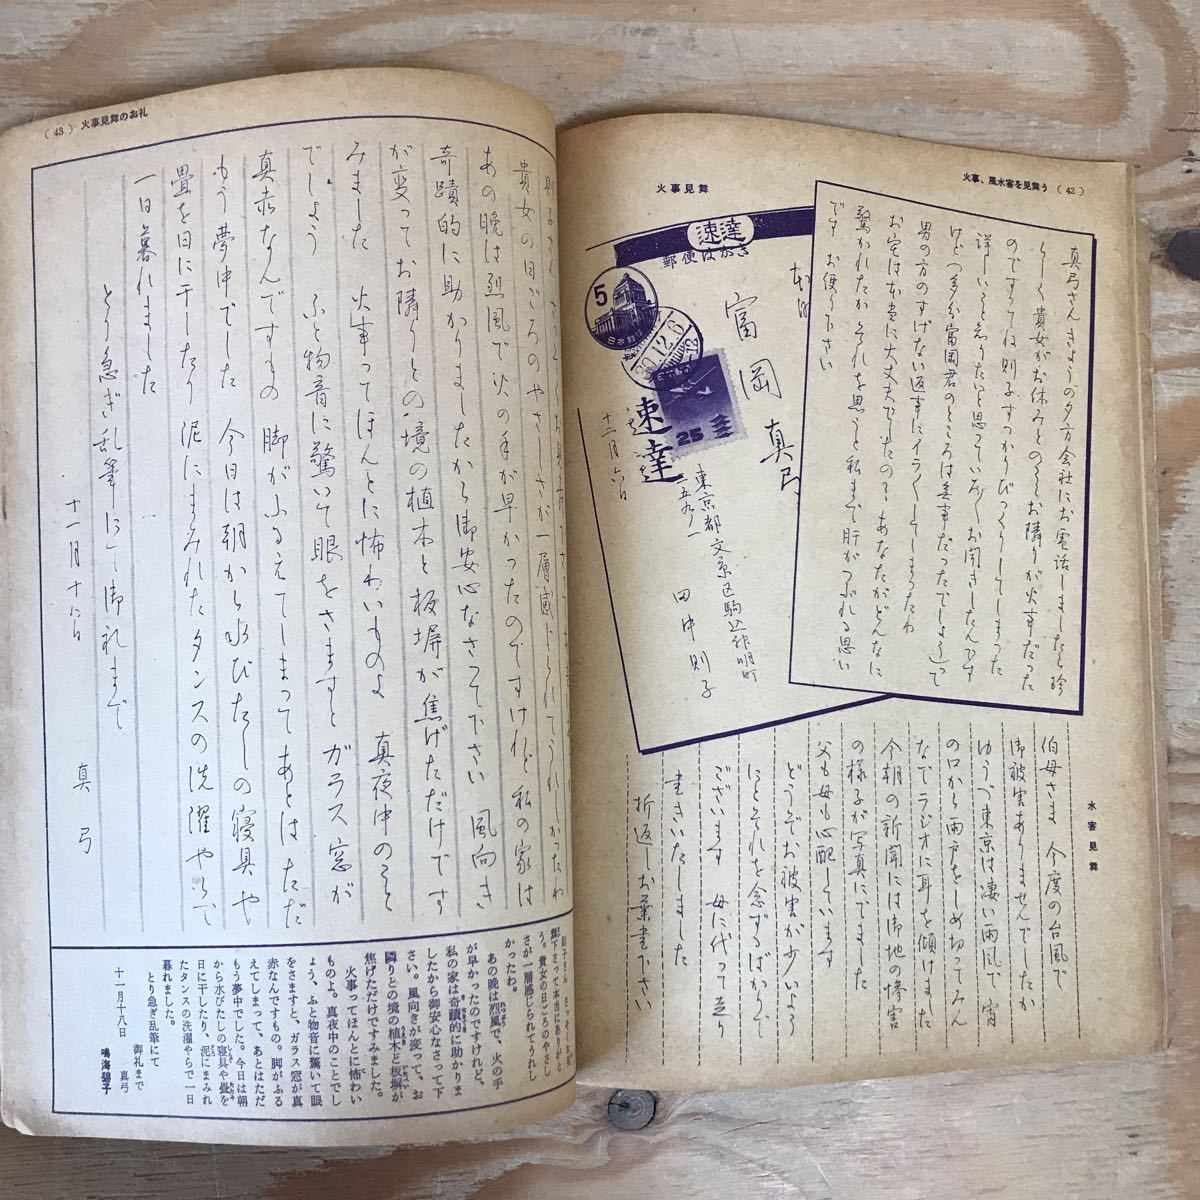 火事、風水害を見舞う (42)
火事見舞
真弓さん きょうの夕方会社にお電話しましたら珍
らしく貴女がお休みとのことお隣りが火事だった
のですってね 則子すっかりびっくりしてしまった
詳しいこと知りたいと思っていろ〳〵お聞きしたんです
けど(多分富岡君のところは無事だったでしょう)って
男の方のすげない返事にイラ〳〵してしまったわ
お宅は本当に大丈夫でしたの？ あなたがどんなに
驚かれたか それを思うと私まで肝がつぶれる思い
です お便り下さい
速達
郵便はがき
5
日本郵便
30.12.6
25
速達
富岡真弓
十二月六日
東京都文京区駒込神明町
一五九ノ一
田中則子
水害見舞
伯母さま 今度の台風で
御被害ありませんでしたか
ゆうべ東京は凄い雨風で 宵
の口から雨戸をしめ切ってみん
なでラジオに耳を傾けました
今朝の新聞には御地の惨害
の様子が写真にでました
父も母も心配しています
どうぞお被害が少いよう
にとそれを念ずるばかりで
ございます 母に代って走り
書きいたしました
折返しお葉書下さい
(43) 火事見舞のお礼
貴女の日ごろのやさしさが一層感じられてうれしかったわ
あの晩は烈風で火の手が早かったのですけれど私の家は
奇蹟的に助かりましたから御安心なさって下さい 風向き
が変ってお隣りとの境の植木と板塀が焦げただけです
みました 火事ってほんとに怖わいものよ 真夜中のこと
でしょう ふと物音に驚いて眼をさますと ガラス窓が
真赤なんですもの 脚がふるえてしまって あとはただ
もう夢中でした 今日は朝から水びたしの寝具や
畳を日に干したり 泥にまみれたタンスの洗濯やらで
一日暮れました
とり急ぎ乱筆にて御礼まで
十一月十八日
真弓
舞下さって本当にありがと
う。貴女の日ごろのやさし
さが一層感じられてうれし
かったわ。
あの晩は烈風で、火の手
が早かったのですけれど、
私の家は奇蹟的に助かりま
したから御安心なさって下
さい。風向きが変って、お
隣りとの境の植木と板塀が
焦げただけですみました。
火事ってほんとに怖わい
ものよ。真夜中のことでし
ょう、ふと物音に驚いて眼
をさますと、ガラス窓が真
赤なんですもの。脚がふる
えてしまって、あとはただ
もう夢中でした。今日は朝
から水びたしの寝具や畳を
日に干したり、泥にまみれ
たタンスの洗濯やらで一日
暮れました。
とり急ぎ乱筆にて
御礼まで
十一月十八日 真弓
鳴海碧子